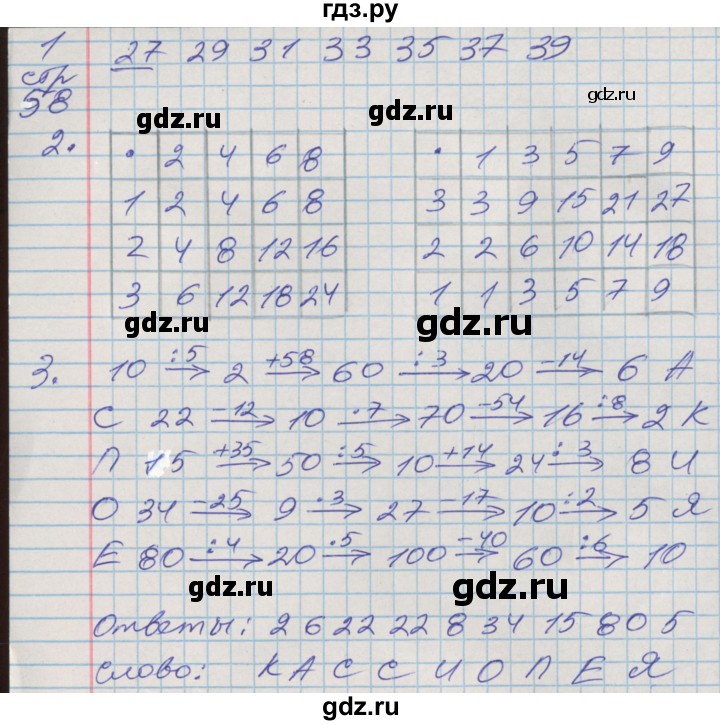 гдз.ру
1 27 29 31 33 35 37 39
стр
58
gdz.ru gdz.ru gdz.ru
2. · 2 4 6 8 · 1 3 5 7 9
1 2 4 6 8 3 3 9 15 21 27
2 4 8 12 16 2 2 6 10 14 18
3 6 12 18 24 1 1 3 5 7 9
gdz.ru gdz.ru
3. 10 :5→ 2 +58→ 60 :3→ 20 -14→ 6 А
С 22 -12→ 10 ·7→ 70 -54→ 16 :8→ 2 К
П 15 +35→ 50 :5→ 10 +14→ 24 :3→ 8 И
О 34 -25→ 9 ·3→ 27 -17→ 10 :2→ 5 Я
Е 80 :4→ 20 ·5→ 100 -40→ 60 :6→ 10
gdz.ru gdz.ru
Ответы: 2 6 22 22 8 34 15 80 5
слово: К А С С И О П Е Я
gdz.ru gdz.ru